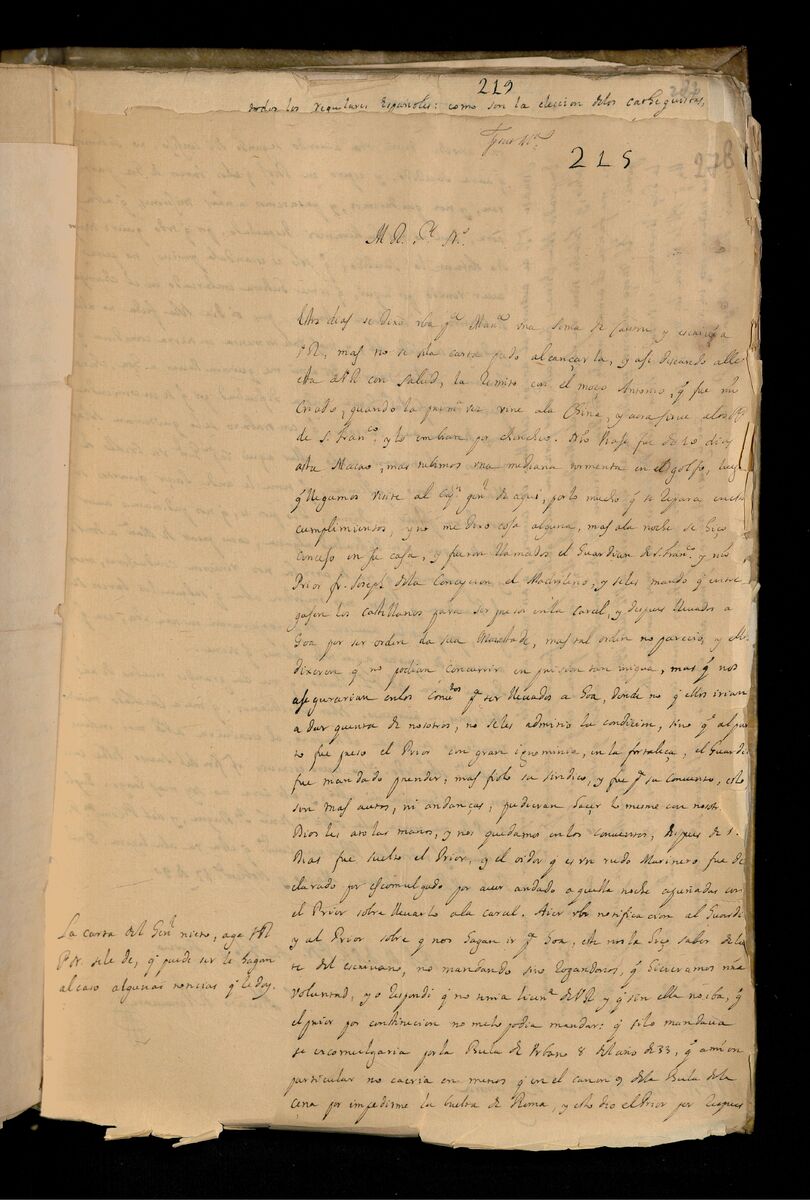 219
todos los regulares Españoles: como son la eleccion delos
215
278
M R. Pe No.
Estos dias se dixo iba pa Mana una soma de y escrivi a
VR, mas no se si la carta pudo alcançarla, y asi deseando alle
esta a VR con salud, la remito con el moço Antonio, q̃ fue mi
criado, quando la prima vez vine ala China, y aora sirve alos
de S. Franco y lo embian por chincheo. Nro viaje fue de 10 dias
asta Macao, mas tubimos una mediana tormenta en el golfo, luego
q̃ llegamos visite al Capn genl de aqui, por lo mucho q̃ se repara en estos
cumplimientos, y no me dixo cosa alguna, mas ala noche se hiço
concejo en su casa, y fueron llamados el Guardian de S. Franco y nro
Prior fr. Joseph dela Concepcion el Madrileño, y seles mando q̃ entre
gasen los castellanos para ser presos en la carcel, y despues llevados a
Goa por ser orden da sua Maiestade, mas tal orden no parecio, y ellos
dixeron q̃ no podian concurrir en prision tan iniqua, mas q̃ nos
asegurarian en los convtos pa ser llevados a Goa, donde no q̃ ellos irian
a dar quenta de nosotros, no seles admitio la condicion, sino q̃ al pun
to fue preso el Prior con gran ignominia, en la fortaleça, el Guardian
fue mandado prender; mas fiolo su sindico, y fue pa su convento, esto
sin mas autos, ni andanças, pudieran haçer lo mesmo con nosotros
Dios les ato las manos, y nos quedamos en los conventos, despues de 5.
Dias fue suelto el Prior, y el oidor q̃ es un rudo Marinero fue de
clarado por escomulgado por aver andado aquella noche apuñadas con
el Prior sobre llevarlo ala carcel. Aier ubo notificacion al Guardian
y al Prior sobre q̃ nos hagan ir pa Goa, este nos la hiço saber delan
te del escrivano, no mandando sino rogandonos, q̃ hicieramos nra
voluntad, yo respondi q̃ no tenia licena de VR y q̃ sin ella no iba, q̃
el prior por constitucion no me lo podia mandar; q̃ si lo mandava
se excomulgaria por la Bula de Urbano 8 del año de 33, q̃ a mi en
particular no caeria en menos q̃ en el canon 9 dela Bula dela
çena por impedirme la buelta de Roma, y esto dio el Prior por respues
La carta del Genl nuevo, aga VR
P. N. sele de, q̃ puede ser le hagan
al caso algunas noticias q̃ le doy.